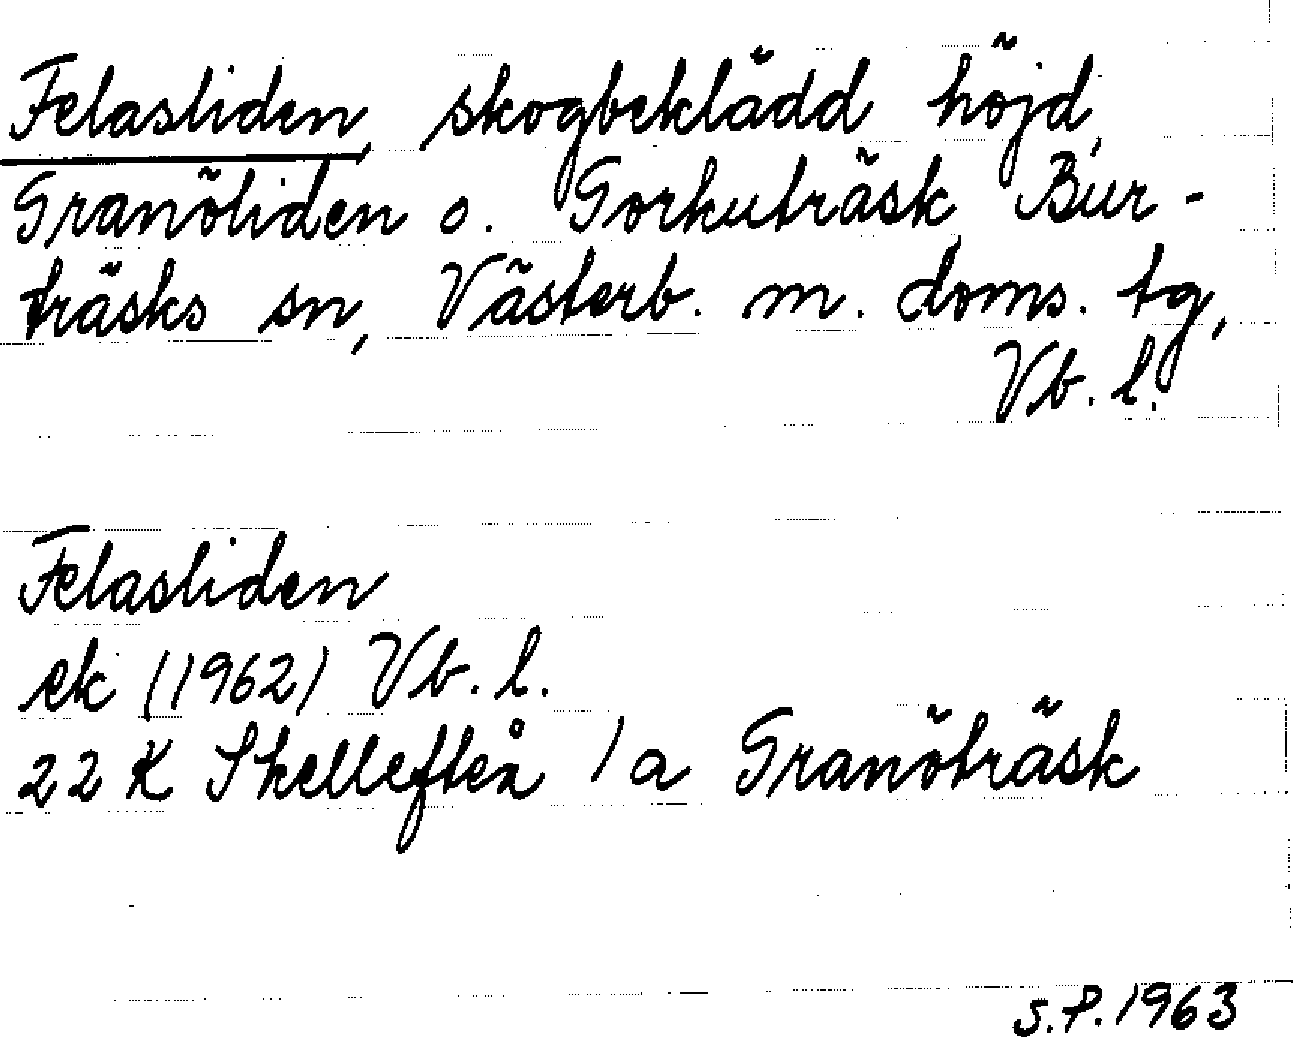 Felasliden, skogbeklädd höjd,
Granöliden o. Gorkuträsk, Bur-
träsks sn, Västerb. m. doms. tg,
Vb. l.
Felasliden
ek (1962) Vb. l.
22 K Skellefteå 1a Granöträsk
S.P. 1963